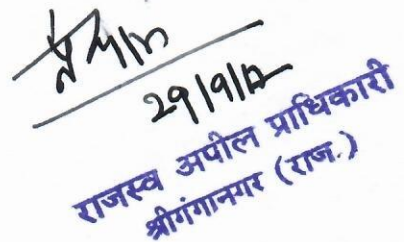 29/9/17
राजस्व अपील प्राधिकारी
श्रीगंगानगर (राज.)